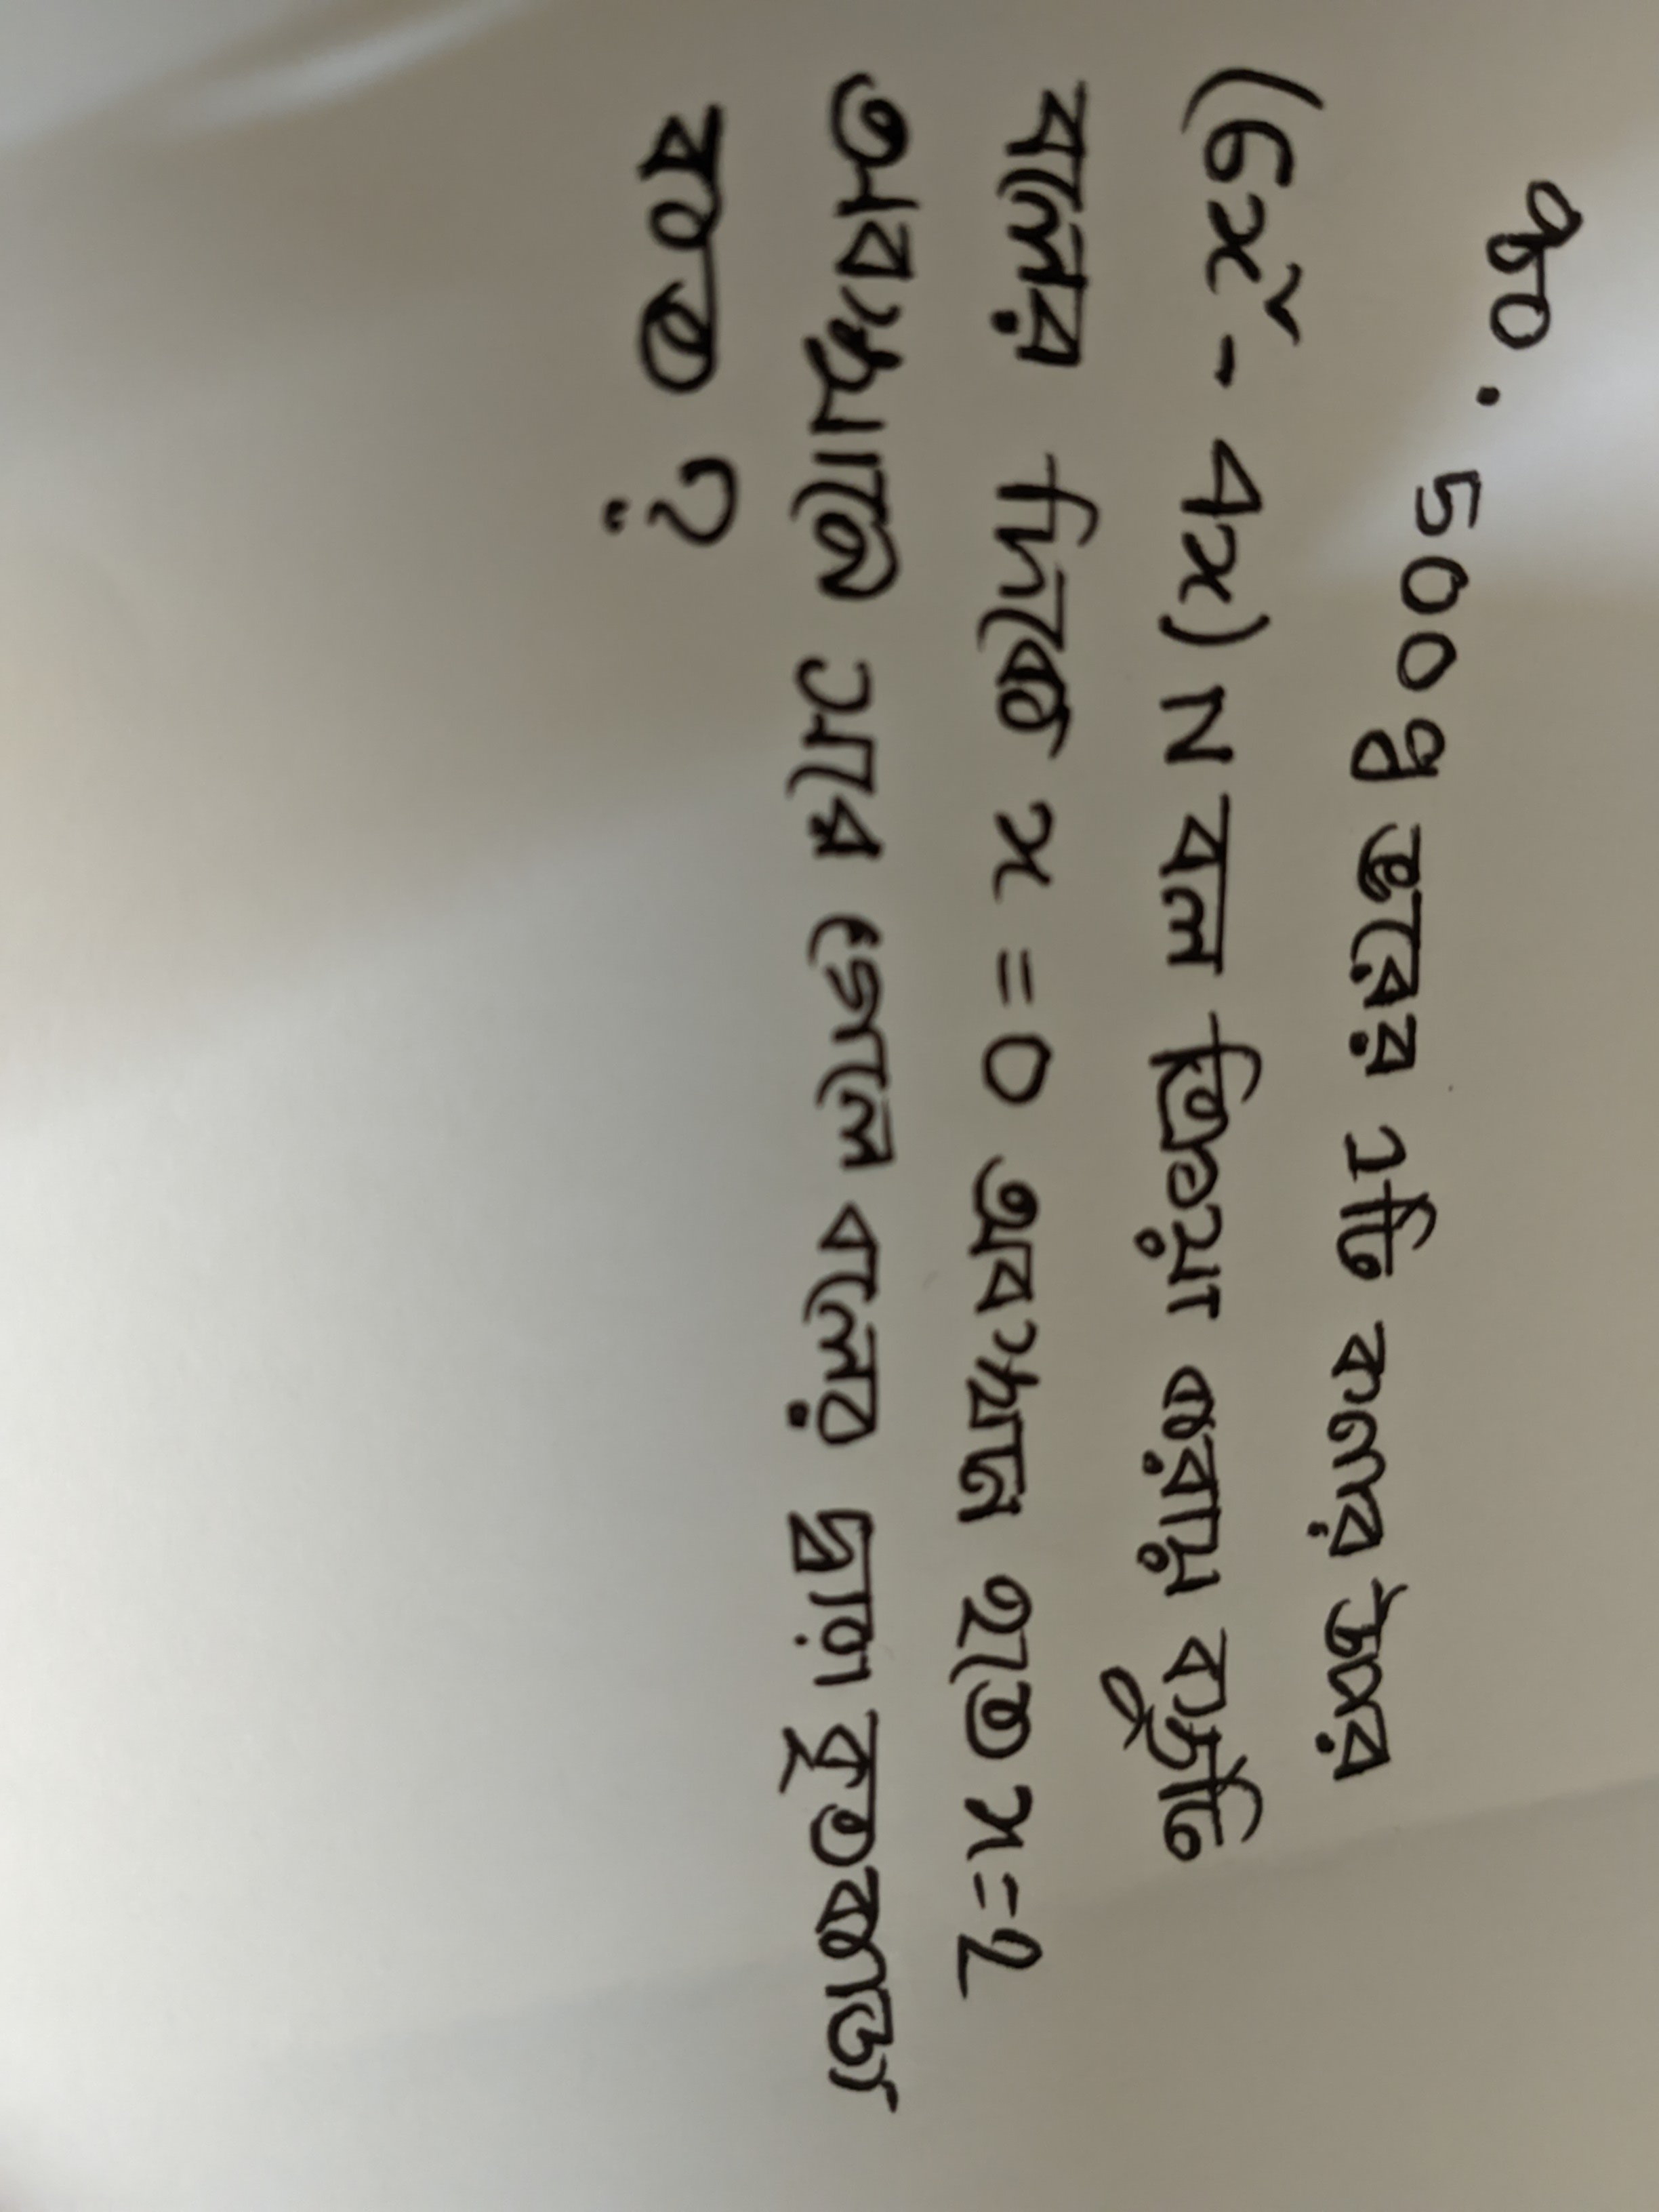 ৪০. 500 g ভরের 1টি কনার উপর
(6x² - 4x) N বল ক্রিয়া করায় বস্তুটি
বলের দিকে x = 0 অবস্থান হতে x=2
অবস্থানে সরে গেলে বলের দ্বারা কৃতকাজ
কত ?